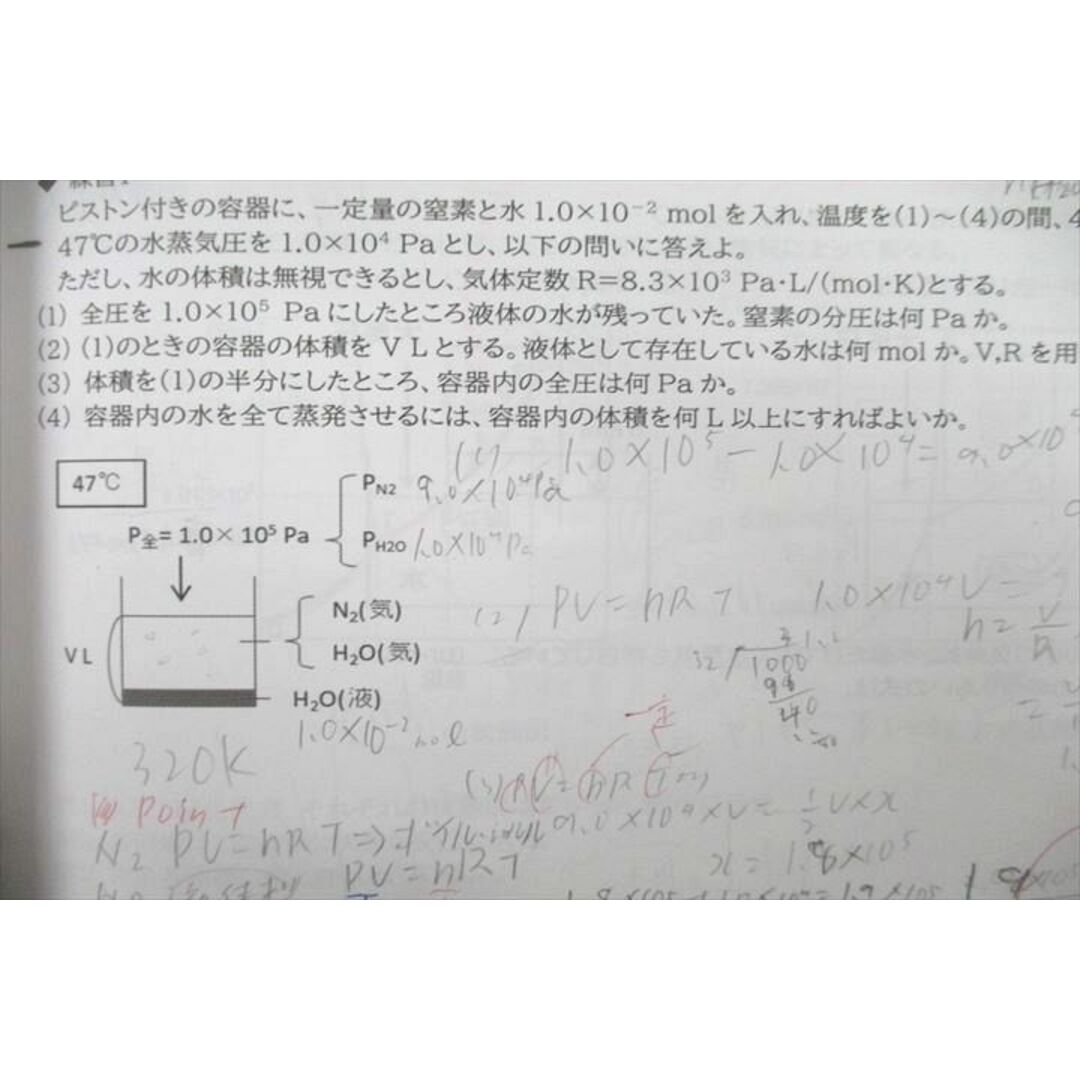 練習1
ピストン付きの容器に、一定量の窒素と水 1.0×10⁻² mol を入れ、温度を(1)～(4)の間、4
47℃の水蒸気圧を 1.0×10⁴ Pa とし、以下の問いに答えよ。
ただし、水の体積は無視できるとし、気体定数 R=8.3×10³ Pa・L/(mol・K)とする。
(1) 全圧を 1.0×10⁵ Pa にしたところ液体の水が残っていた。窒素の分圧は何 Pa か。
(2) (1)のときの容器の体積を V L とする。液体として存在している水は何 mol か。V,R を用
(3) 体積を(1)の半分にしたところ、容器内の全圧は何 Pa か。
(4) 容器内の水を全て蒸発させるには、容器内の体積を何 L 以上にすればよいか。
(1) 1.0×10⁵ − 1.0×10⁴ = 9.0×10⁴
47℃
P_N2 9.0×10⁴Pa
P全= 1.0× 10⁵ Pa
P_H2O 1.0×10⁴Pa
N₂(気)
(2) PV=nRT 1.0×10⁴V=
n=
V L
H₂O(気)
32 1000
96
40
H₂O(液)
1.0×10⁻² mol
一定
320K
(3) PV=nRT
Point
9.0×10⁴×V= 1/2 V×x
N₂ PV=nRT⇒ボイル・シャルル
x=1.8×10⁵
PV=nRT